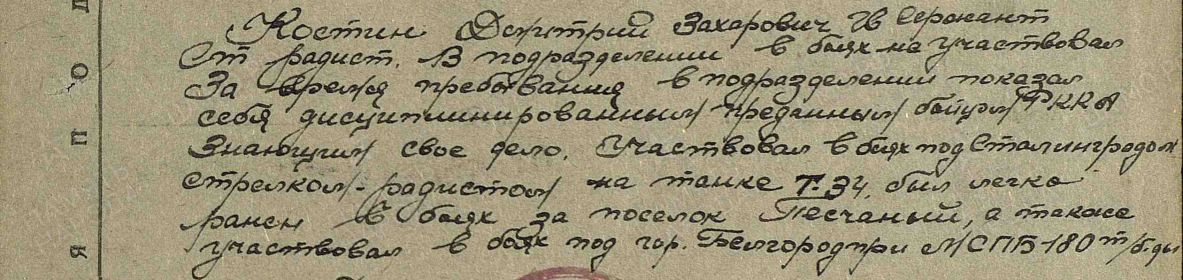 Костин Дмитрий Захарович Гв Сержант
Ст радист. В подразделении в боях не участвовал
За время пребывания в подразделении показал
себя дисциплинированным преданным бойцом РККА
Знающим свое дело. Участвовал в боях под Сталинградом
стрелком-радистом на танке Т-34, был легко
ранен в боях за поселок Песчаный, а также
участвовал в боях под гор. Белгород при МСПБ 180 т/б.ды